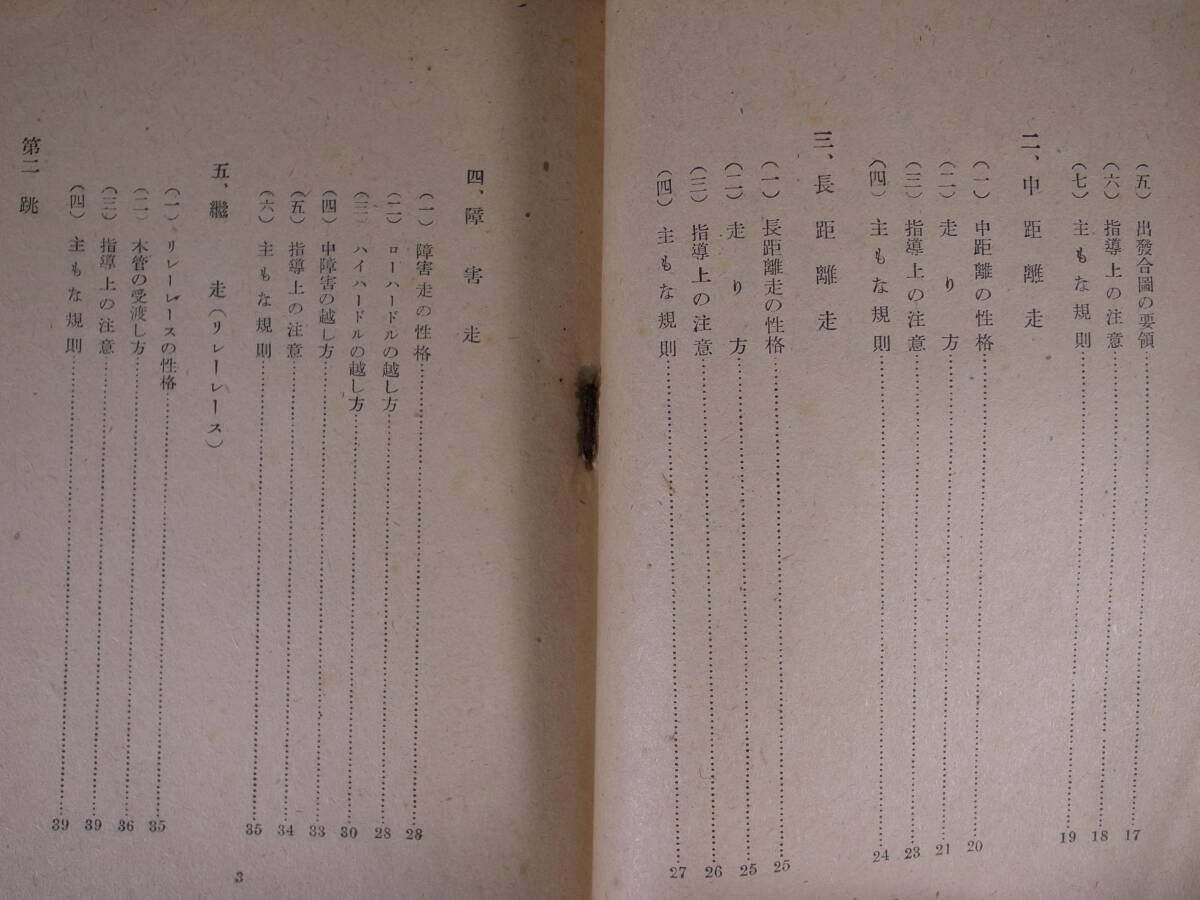 (五) 出發合圖の要領……17
(六) 指導上の注意……18
(七) 主もな規則……19
二、中距離走
(一) 中距離の性格……20
(二) 走り方……21
(三) 指導上の注意……23
(四) 主もな規則……24
三、長距離走
(一) 長距離走の性格……25
(二) 走り方……25
(三) 指導上の注意……26
(四) 主もな規則……27
四、障害走
(一) 障害走の性格……28
(二) ローハードルの越し方……28
(三) ハイハードルの越し方……30
(四) 中障害の越し方……33
(五) 指導上の注意……34
(六) 主もな規則……35
五、繼走(リレーレース)
(一) リレーレースの性格……35
(二) 木管の受渡し方……36
(三) 指導上の注意……39
(四) 主もな規則……39
第二 跳
3